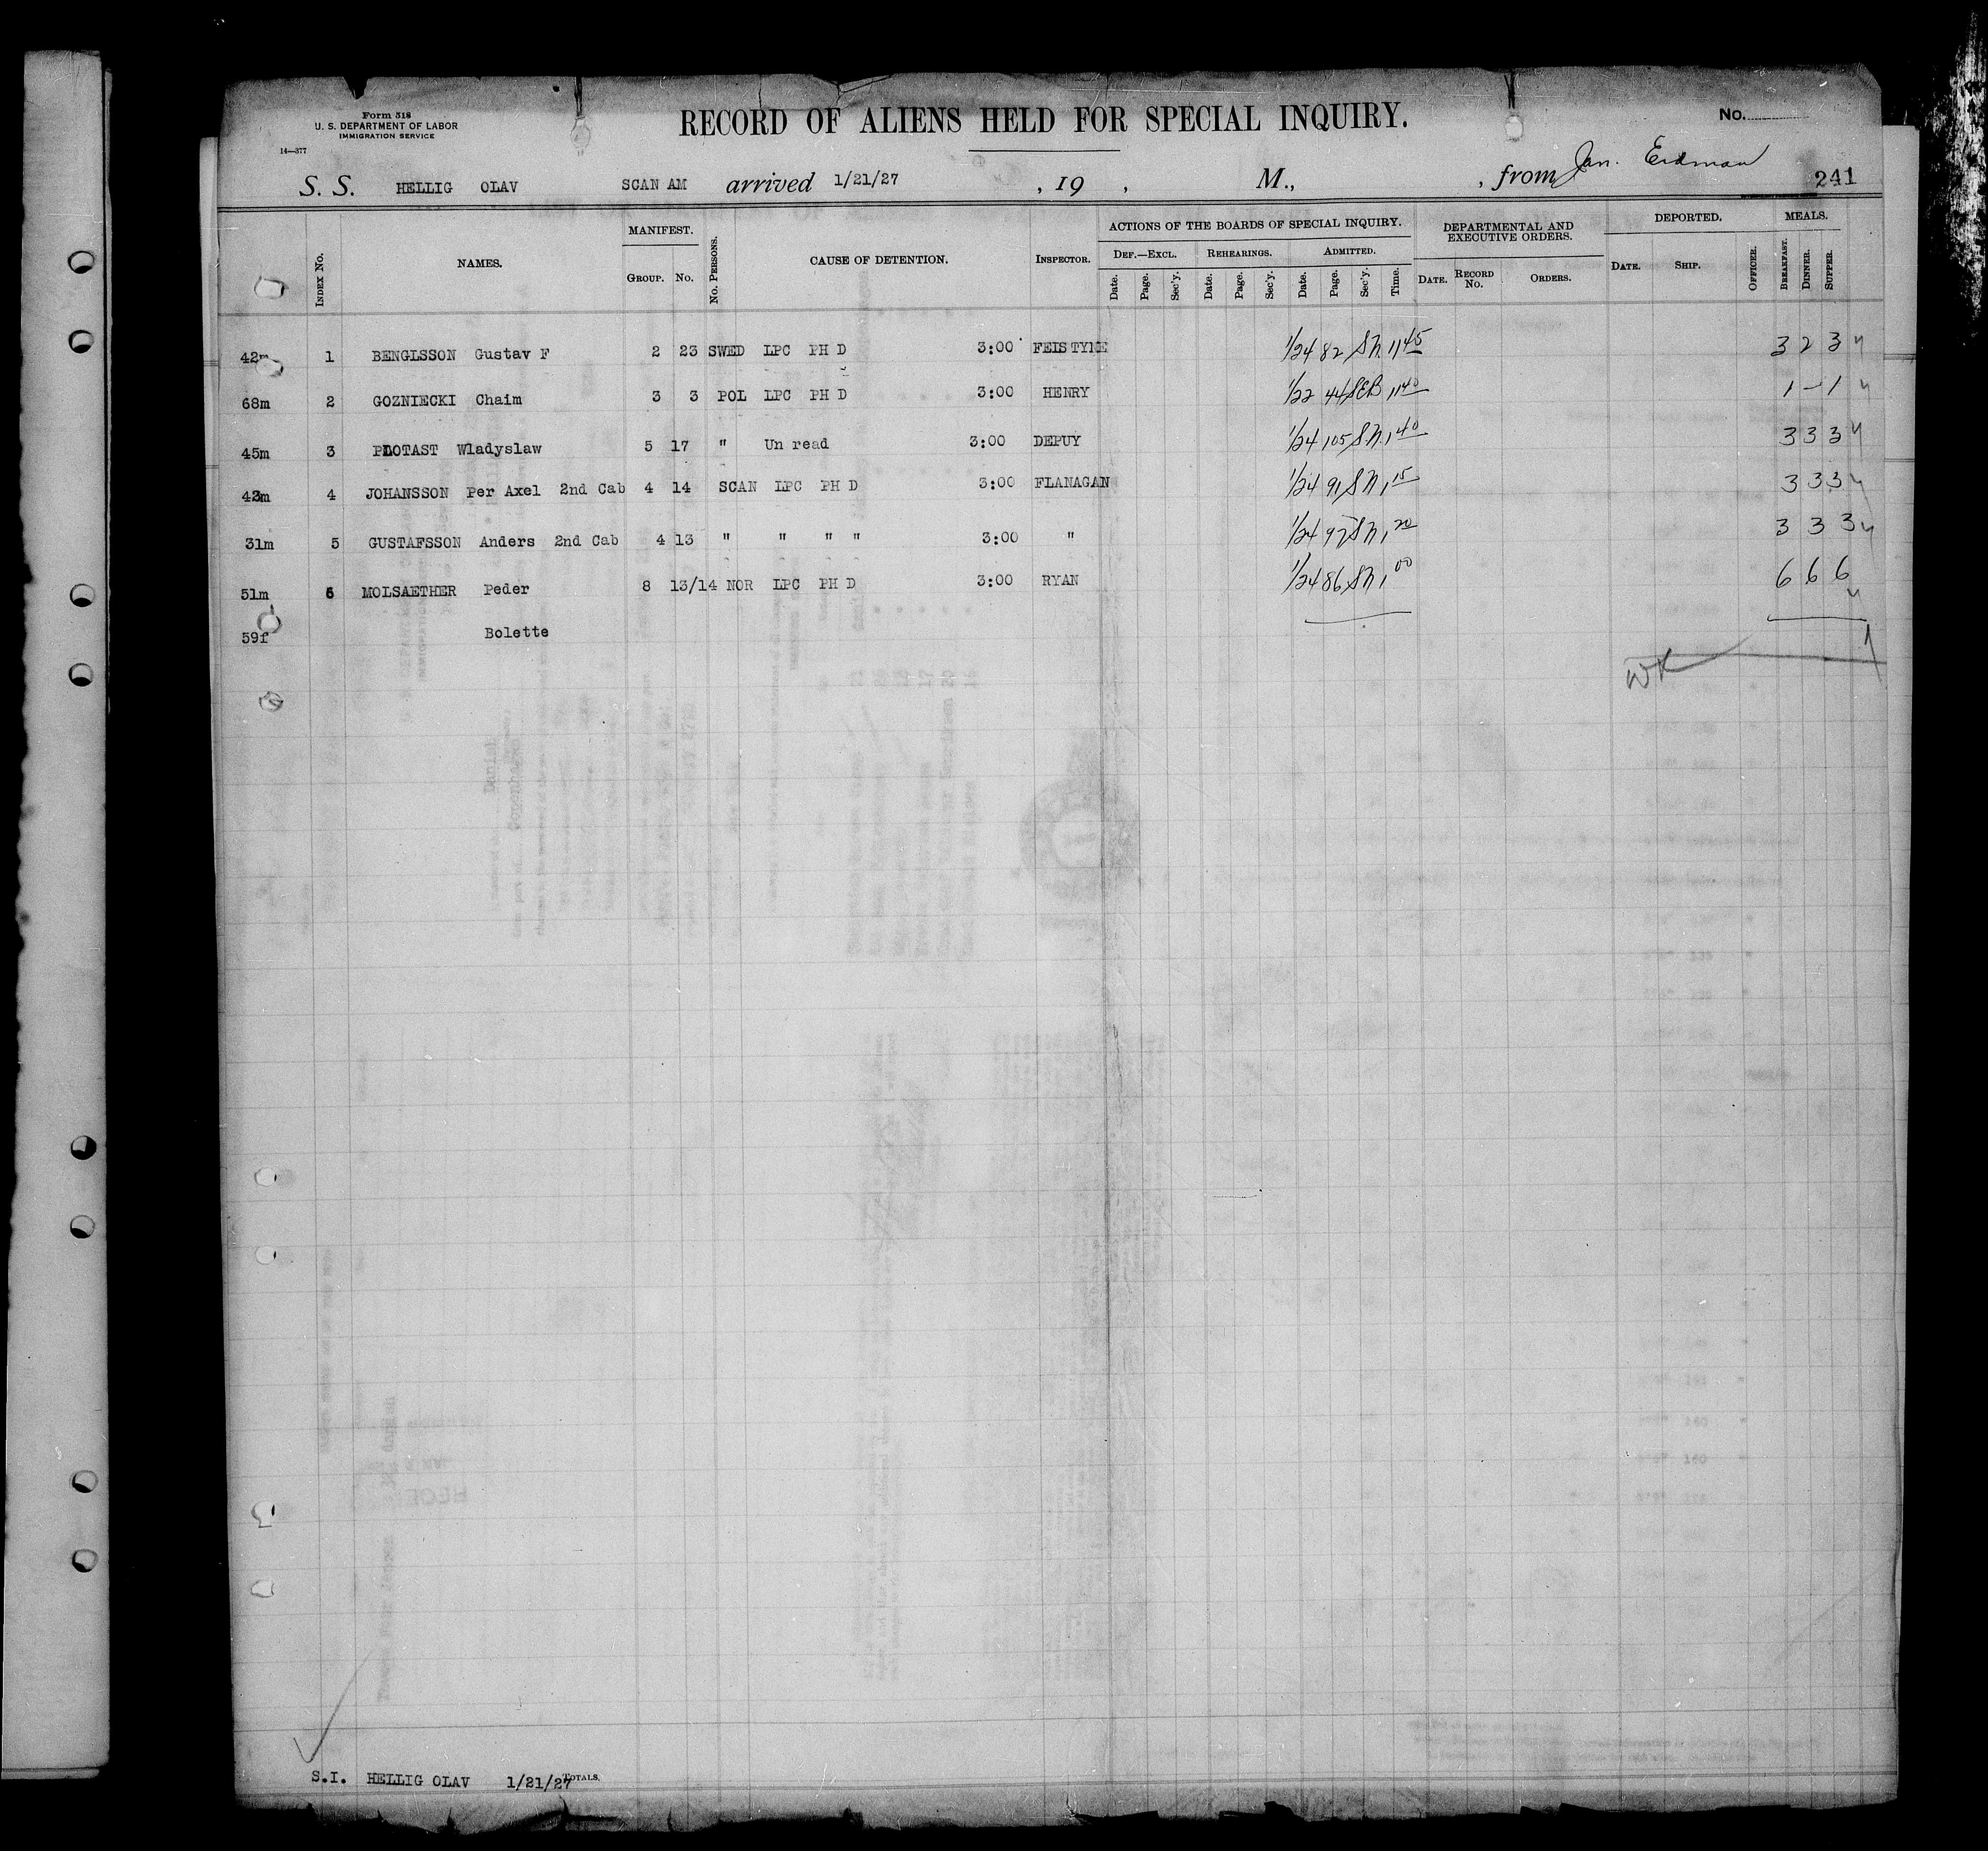 Form 518
U. S. DEPARTMENT OF LABOR
IMMIGRATION SERVICE
14—377
RECORD OF ALIENS HELD FOR SPECIAL INQUIRY.
No.
S. S. HELLIG OLAV SCAN AM arrived 1/21/27 , 19 , M., , from Jan. Erdman 241
Index No. NAMES. MANIFEST. Group. No. No. Persons. CAUSE OF DETENTION. Inspector. ACTIONS OF THE BOARDS OF SPECIAL INQUIRY. Def.—Excl. Date. Page. Sec'y. Rehearings. Date. Page. Sec'y. Admitted. Date. Page. Sec'y. Time. DEPARTMENTAL AND EXECUTIVE ORDERS. Date. Record No. Orders. DEPORTED. Date. Ship. Officer. MEALS. Breakfast. Dinner. Supper.
42m 1 BENGLSSON Gustav F 2 23 SWED LPC PH D 3:00 FEISTYNE 1/24 82 SN 11 45 3 2 3
68m 2 GOZNIECKI Chaim 3 3 POL LPC PH D 3:00 HENRY 1/22 44 SEB 11 40 1 — 1
45m 3 PLOTAST Wladyslaw 5 17 " Un read 3:00 DEPUY 1/24 105 SN 1 40 3 3 3
43m 4 JOHANSSON Per Axel 2nd Cab 4 14 SCAN LPC PH D 3:00 FLANAGAN 1/24 91 SN 1 15 3 3 3
31m 5 GUSTAFSSON Anders 2nd Cab 4 13 " " " " 3:00 " 1/24 97 SN 1 20 3 3 3
51m 6 MOLSAETHER Peder 8 13/14 NOR LPC PH D 3:00 RYAN 1/24 86 SN 1 00 6 6 6
59f Bolette
S.I. HELLIG OLAV 1/21/27 Totals.